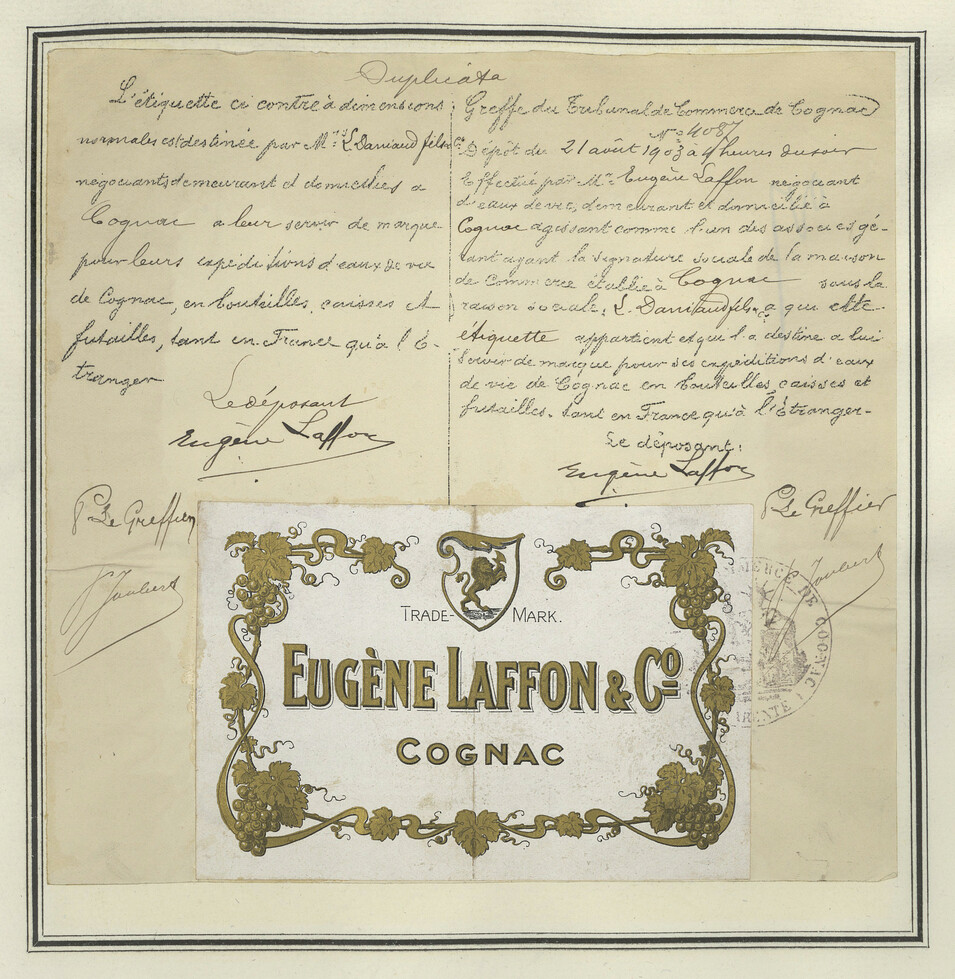 Duplicata
L'étiquette ci contre à dimensions
normales est destinée par Mrs L. Daniaud fils & Cie
négociants demeurant et domiciliés a
Cognac a leur servir de marque
pour leurs expéditions d'eaux de vie
de Cognac, en bouteilles, caisses et
futailles, tant en France qu'à l'É-
tranger
Le déposant
Eugène Laffon
P. Le Greffier
Joubert
Greffe du Tribunal de Commerce de Cognac
No 4087
Dépôt du 21 août 1903 à 4 heures du soir
Effectué par Mr Eugène Laffon négociant
d'eaux de vie, demeurant et domicilié à
Cognac agissant comme l'un des associés gé-
rant ayant la signature sociale de la maison
de Commerce établie à Cognac sous la
raison sociale: L. Daniaud fils & Cie a qui cette
étiquette appartient et qui l'a destine a lui
servir de marque pour ses expéditions d'eaux
de vie de Cognac en bouteilles, caisses et
futailles. tant en France qu'à l'Étranger-
Le déposant:
Eugène Laffon
P. Le Greffier
Joubert
TRADE-MARK.
EUGÈNE LAFFON & Co
COGNAC
MMERCE DE COGNAC
ARENTE